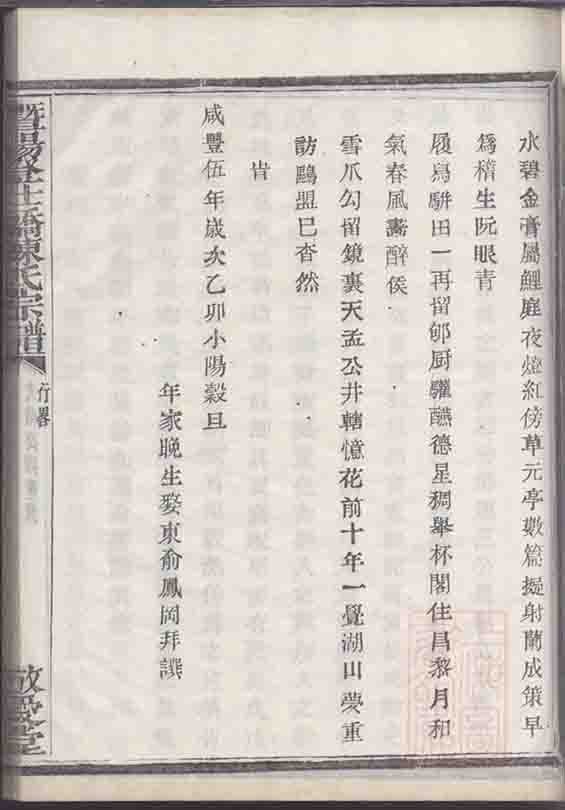 水碧金膏屬鯉庭夜燈紅傍草元亭數篇擬射蘭成策早
爲稽生阮眼青
履舄駢田一再留郇厨驩醼德星稠舉杯閣住昌黎月和
氣春風壽醉侯
雪爪勾留鏡裏天孟公井轄憶花前十年一覺湖山夢重
訪鷗盟已杳然
旹
咸豐伍年歲次乙卯小陽穀旦
年家晚生婺東俞鳳岡拜譔
暨陽
橋陳氏宗譜
行畧
敘堂